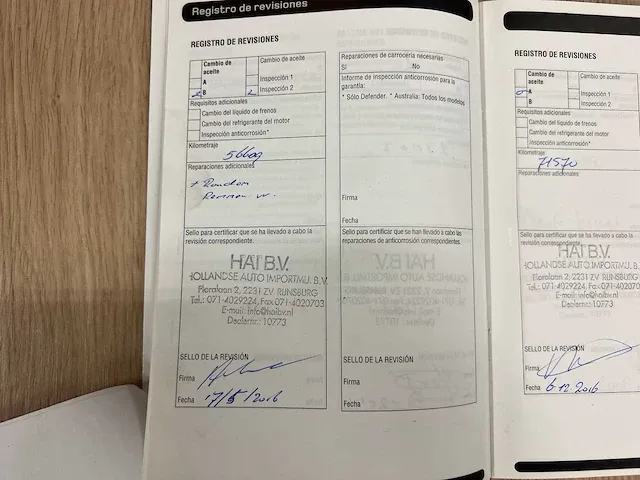 Registro de revisiones
REGISTRO DE REVISIONES
Cambio de aceite
Cambio de aceite
A
Inspección 1
B
Inspección 2
Requisitos adicionales
Cambio del líquido de frenos
Cambio del refrigerante del motor
Inspección anticorrosión*
Kilometraje
56609
Reparaciones adicionales
+ Rondom
Remmen
Sello para certificar que se ha llevado a cabo la
revisión correspondiente.
HAI B.V.
HOLLANDSE AUTO IMPORTMIJ. B.V.
Floralaan 2, 2231 ZV RIJNSBURG
Tel.: 071-4029224, Fax 071-4020703
E-mail: info@haibv.nl
Dealernr.: 10773
SELLO DE LA REVISIÓN
Firma
Fecha 17/5/2016
Reparaciones de carrocería necesarias
Sí No
Informe de inspección anticorrosión para la
garantía:
* Sólo Defender. * Australia: Todos los modelos
Firma
Fecha
Sello para certificar que se han llevado a cabo las
reparaciones de anticorrosión correspondientes.
SELLO DE LA REVISIÓN
Firma
Fecha
REGISTRO DE REVISIONES
Cambio de aceite
Cambio de aceite
A
Inspección 1
B
Inspección 2
Requisitos adicionales
Cambio del líquido de frenos
Cambio del refrigerante del motor
Inspección anticorrosión*
Kilometraje
71570
Reparaciones adicionales
Sello para certificar que se ha llevado a cabo la
revisión correspondiente.
HAI B.V.
HOLLANDSE AUTO IMPORTMIJ. B.
Floralaan 2, 2231 ZV RIJNSBURG
Tel.: 071-4029224, Fax 071-40207
E-mail: info@haibv.nl
Dealernr.: 10773
SELLO DE LA REVISIÓN
Firma
Fecha 6.12.2016